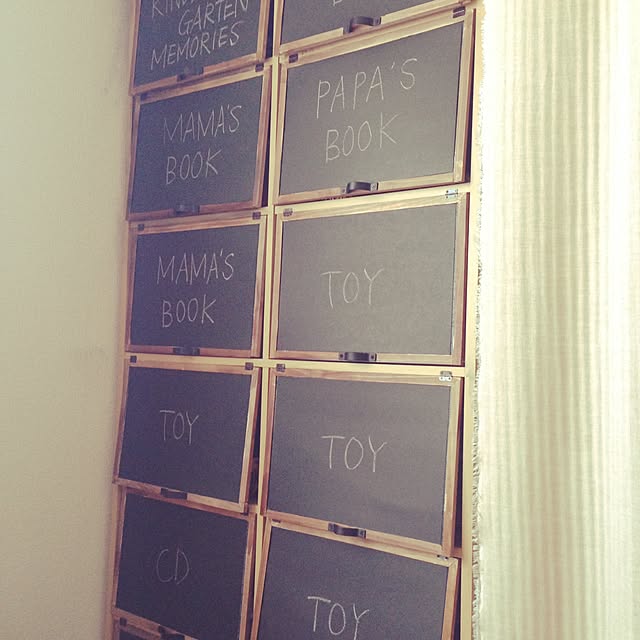 GARTEN
MEMORIES
MAMA'S
BOOK
PAPA'S
BOOK
MAMA'S
BOOK
TOY
TOY
TOY
CD
TOY